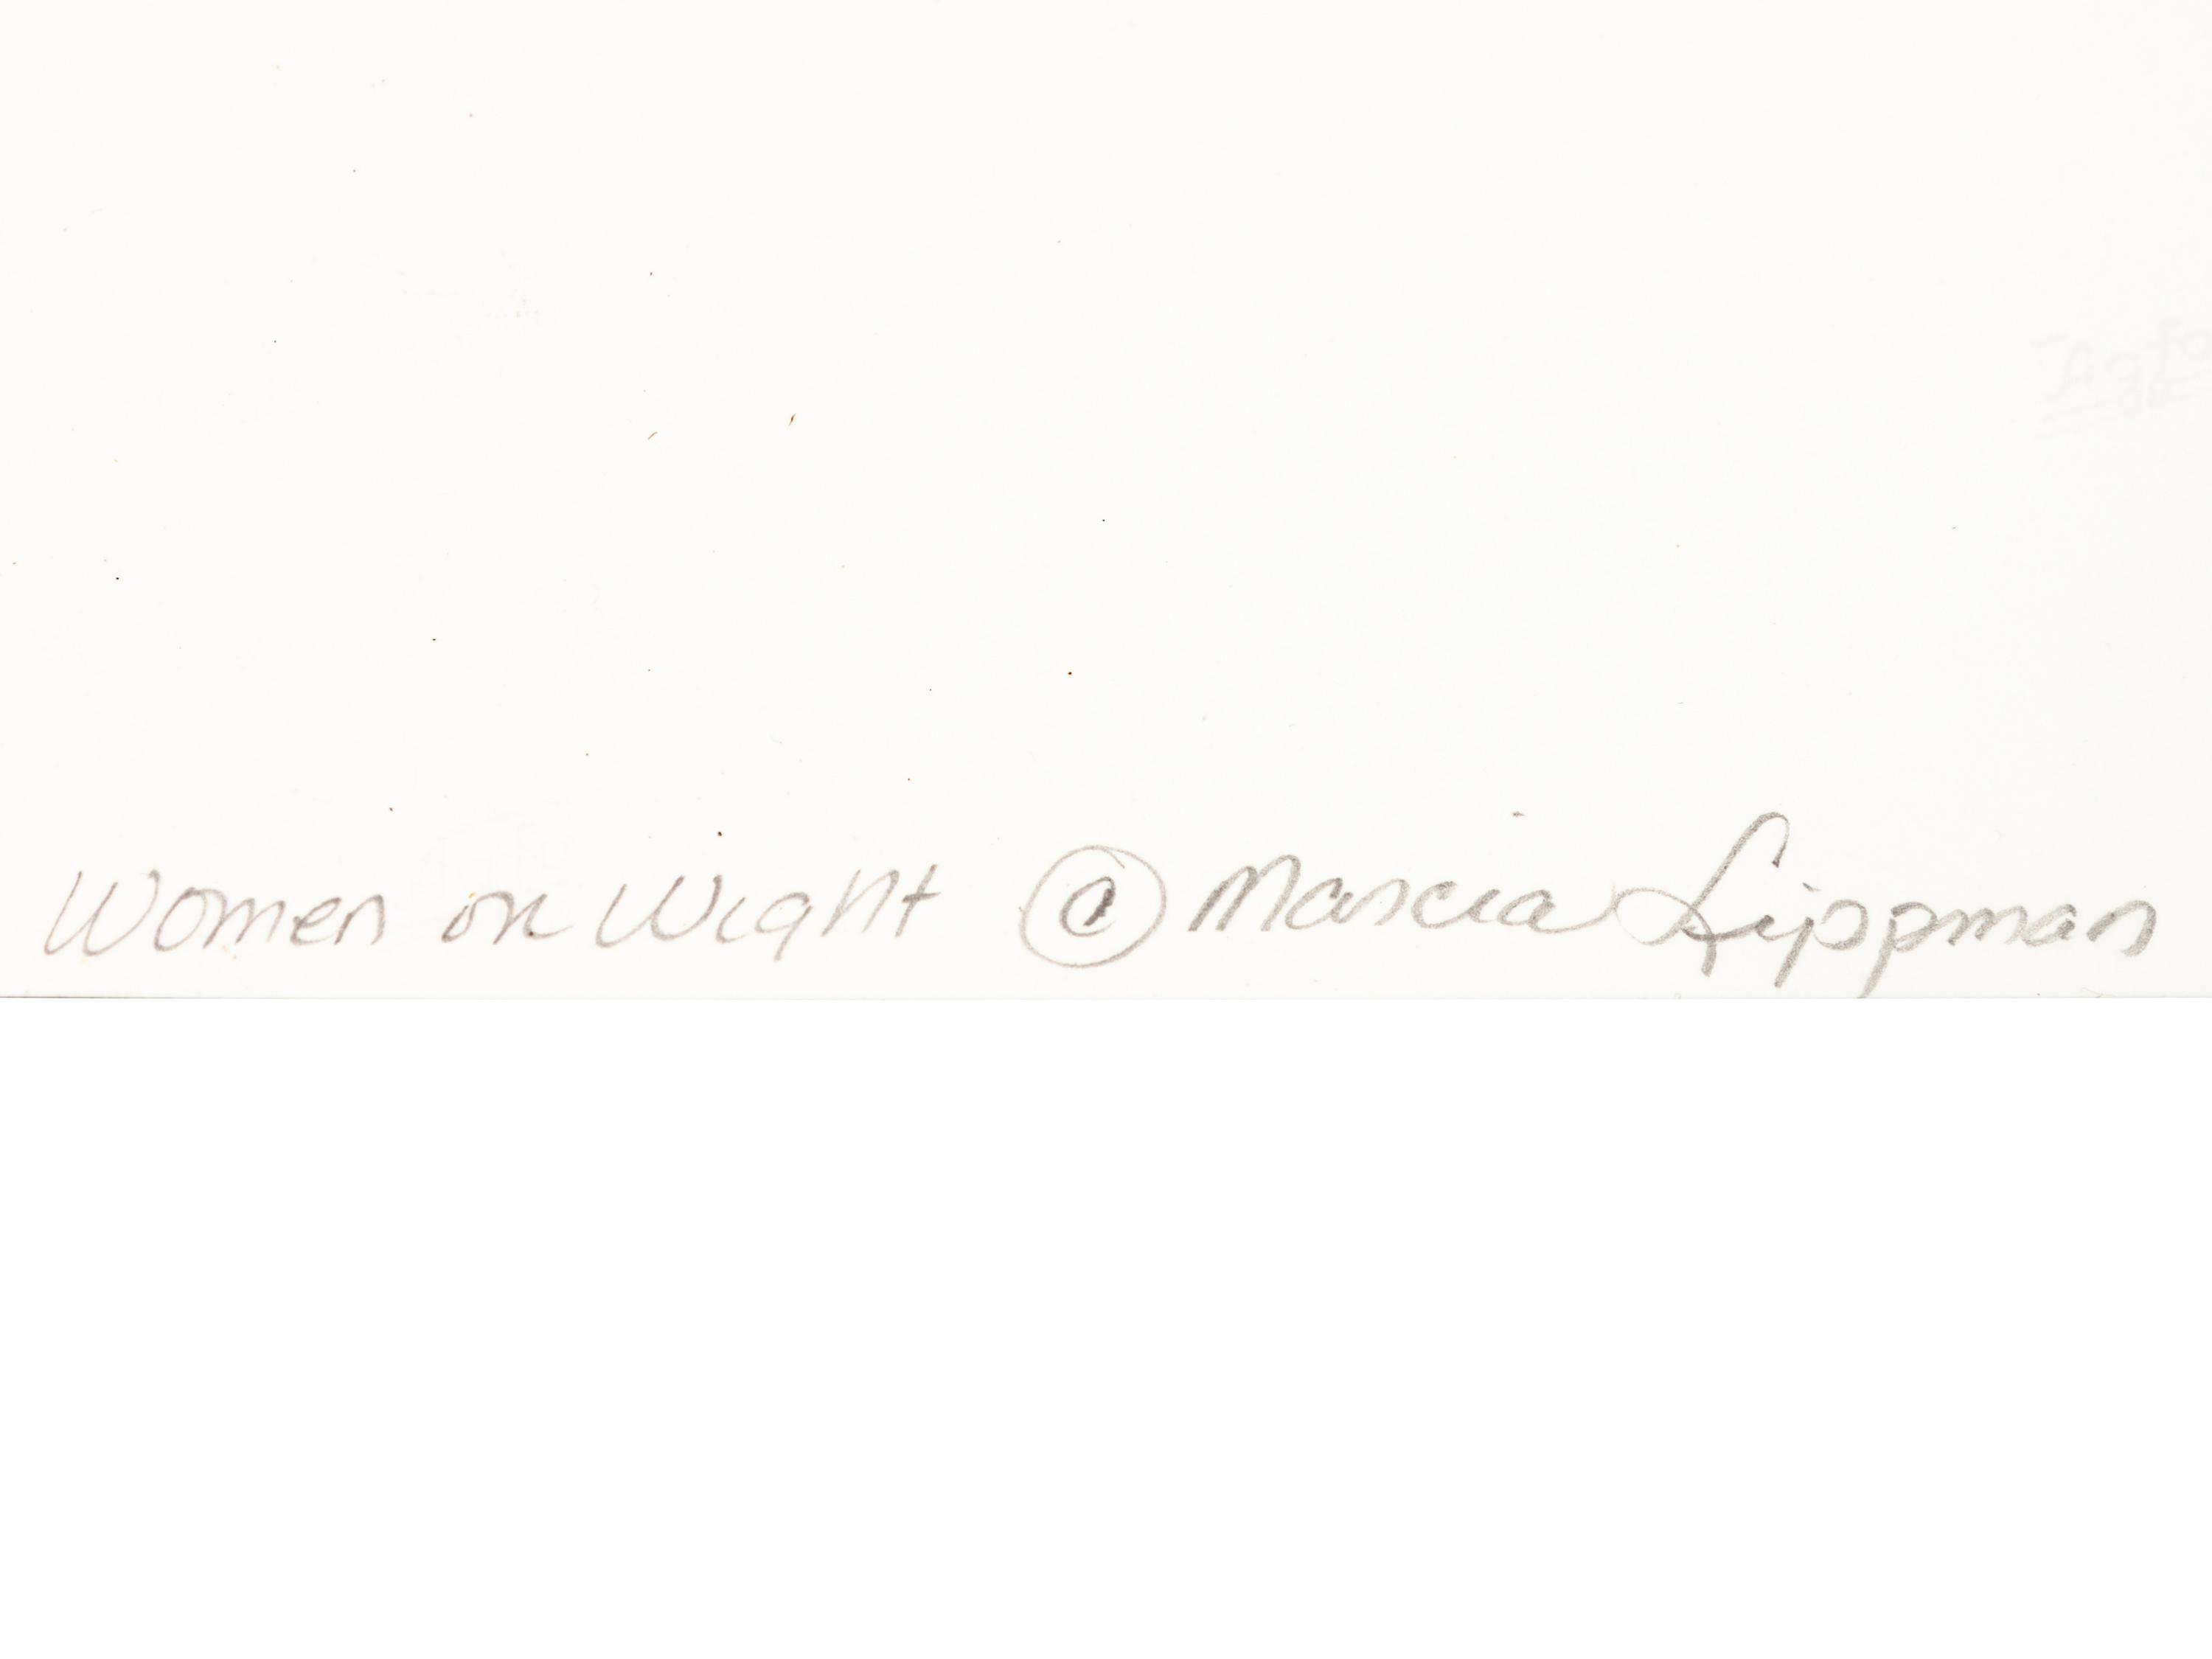 Women on Wight © Marcia Lippman